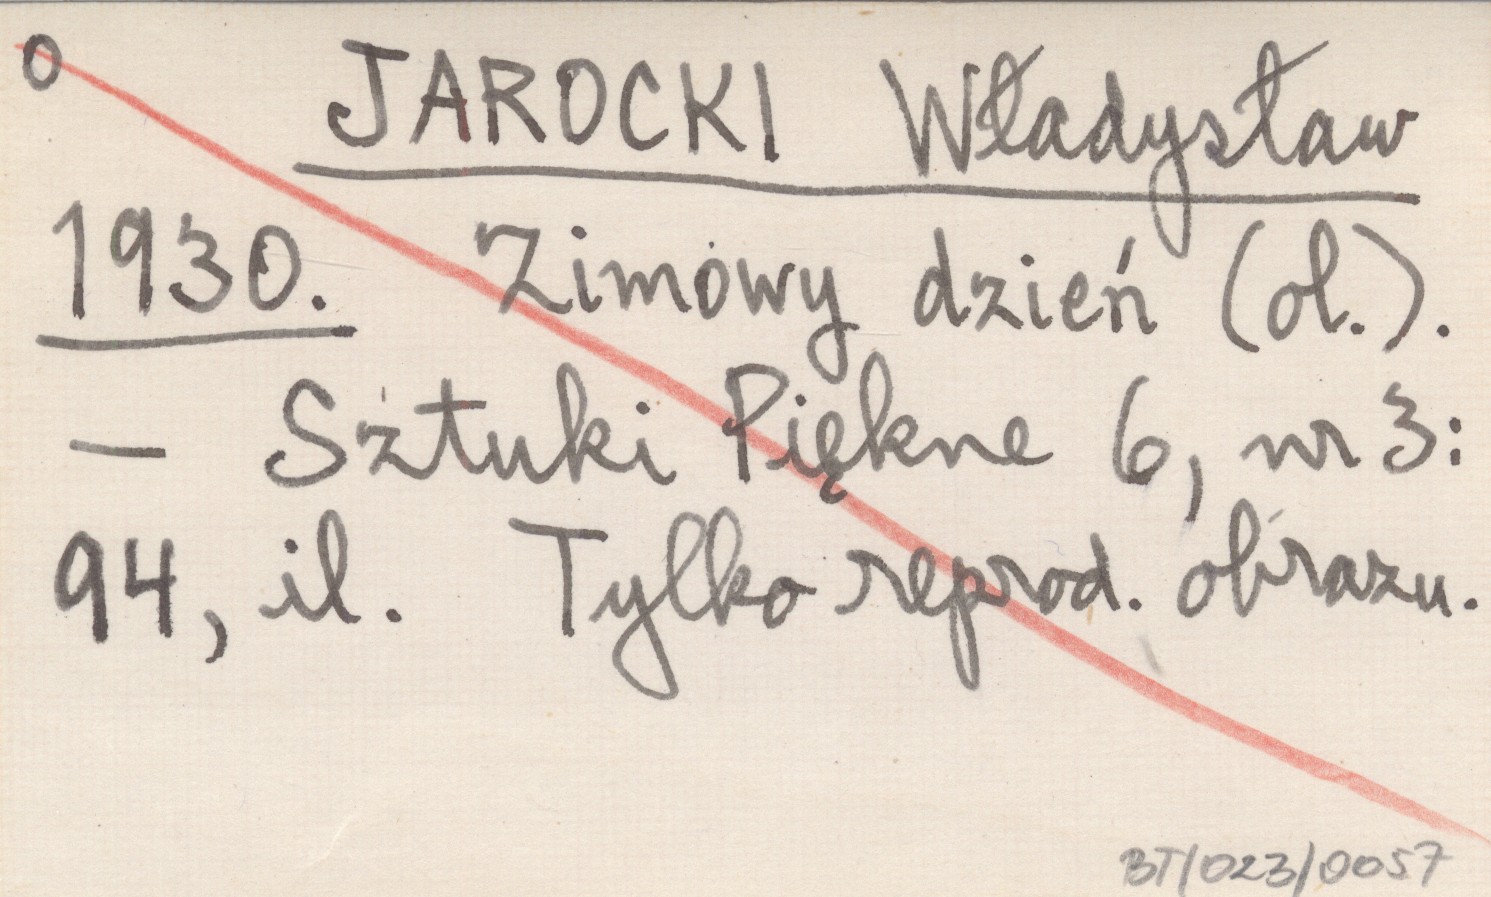 0 JAROCKI Władysław
1930. Zimowy dzień (ol.).
— Sztuki Piękne 6, nr 3:
94, il. Tylko reprod. obrazu.
BT/023/0057